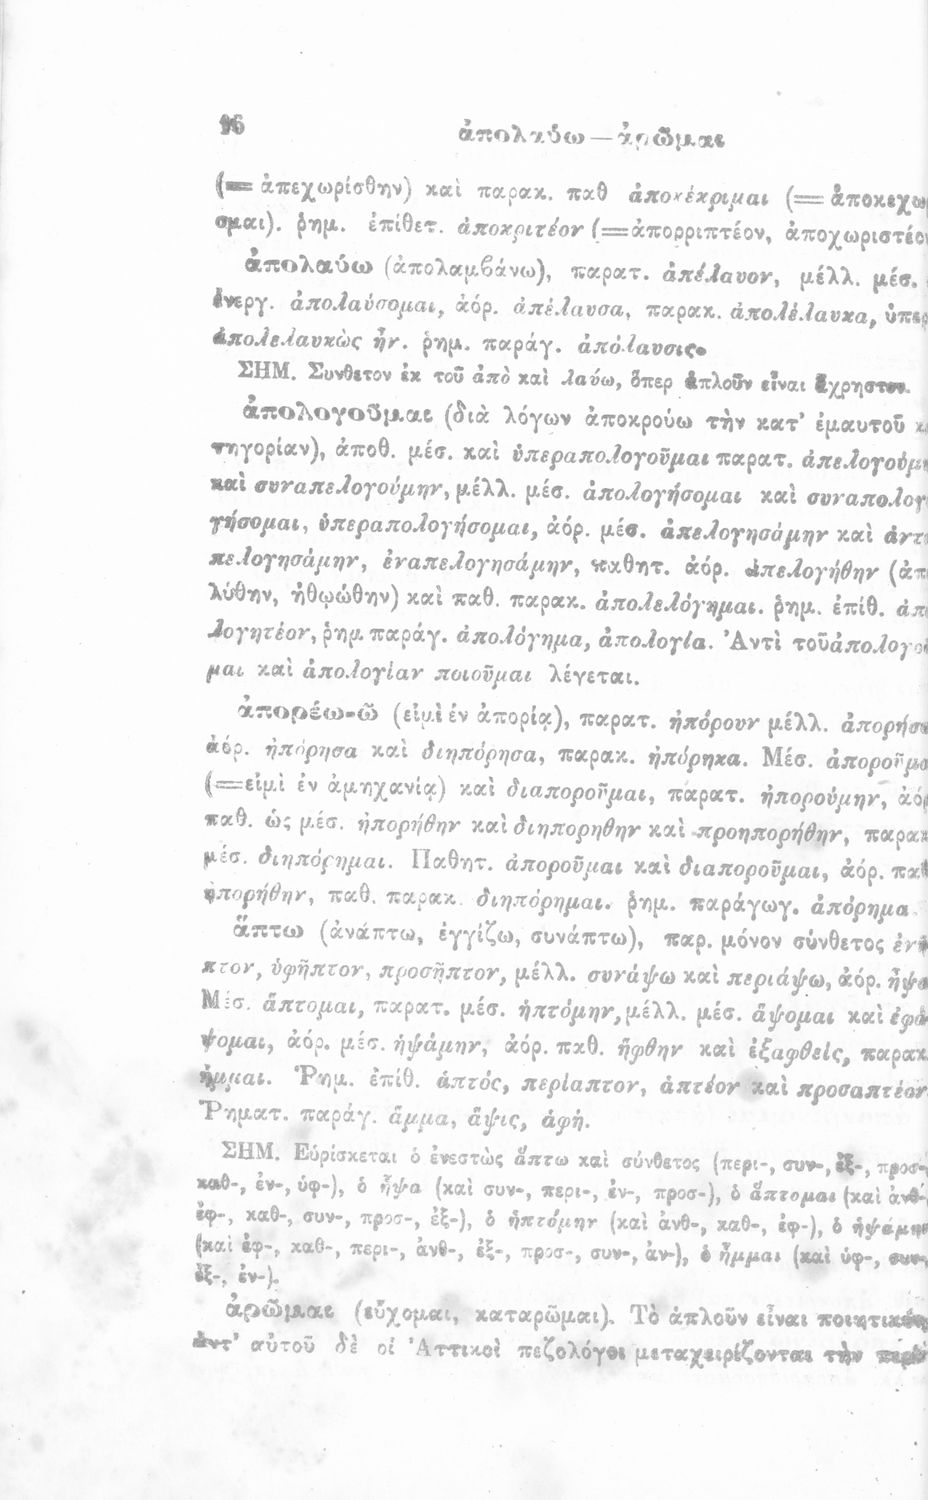 16
ἀπολαύω — ἀρῶμαι
(= ἀπεχωρίσθην) καὶ παρακ. παθ ἀποκέκριμαι (= ἀποκεχω
σμαι). ῥημ. ἐπίθετ. ἀποκριτέον (=ἀπορριπτέον, ἀποχωριστέον
ἀπολαύω (ἀπολαμβάνω), παρατ. ἀπέλαυον, μέλλ. μέσ.
ἐνεργ. ἀπολαύσομαι, ἀόρ. ἀπέλαυσα, παρακ. ἀπολέλαυκα, ὑπερ
ἀπολελαυκὼς ἦν. ῥημ. παράγ. ἀπόλαυσις.
ΣΗΜ. Συνθετον ἐκ τοῦ ἀπὸ καὶ λαύω, ὅπερ ἁπλοῦν εἶναι ἄχρηστον.
ἀπολογοῦμαι (διὰ λόγων ἀποκρούω τὴν κατ' ἐμαυτοῦ κα
τηγορίαν), ἀποθ. μέσ. καὶ ὑπεραπολογοῦμαι παρατ. ἀπελογούμη
καὶ συναπελογούμην, μέλλ. μέσ. ἀπολογήσομαι καὶ συναπολογ
γήσομαι, ὑπεραπολογήσομαι, ἀόρ. μέσ. ἀπελογησάμην καὶ ἀντα
πελογησάμην, ἐναπελογησάμην, παθητ. ἀόρ. ἀπελογήθην (ἀπ
λύθην, ἠθῳώθην) καὶ παθ. παρακ. ἀπολελόγημαι. ῥημ. ἐπίθ. ἀπ
λογητέον, ῥημ παράγ. ἀπολόγημα, ἀπολογία. Ἀντὶ τοῦ ἀπολογοῦ
μαι καὶ ἀπολογίαν ποιοῦμαι λέγεται.
ἀπορέω-ῶ (εἰμὶ ἐν ἀπορίᾳ), παρατ. ἠπόρουν μέλλ. ἀπορήσω
ἀόρ. ἠπόρησα καὶ διηπόρησα, παρακ. ἠπόρηκα. Μέσ. ἀποροῦμα
(=εἰμὶ ἐν ἀμηχανίᾳ) καὶ διαποροῦμαι, παρατ. ἠπορούμην, ἀόρ
παθ. ὡς μέσ. ἠπορήθην καὶ διηπορηθην καὶ προηπορήθην, παρακ
μέσ. διηπόρημαι. Παθητ. ἀποροῦμαι καὶ διαποροῦμαι, ἀόρ. παθ
ἠπορήθην, παθ. παρακ. διηπόρημαι. ῥημ. παράγωγ. ἀπόρημα.
ἅπτω (ἀνάπτω, ἐγγίζω, συνάπτω), παρ. μόνον σύνθετος ἐνῆ
πτον, ὑφῆπτον, προσῆπτον, μέλλ. συνάψω καὶ περιάψω, ἀόρ. ἧψα
Μέσ. ἅπτομαι, παρατ. μέσ. ἡπτόμην, μέλλ. μέσ. ἅψομαι καὶ ἐφά
ψομαι, ἀόρ. μέσ. ἡψάμην, ἀόρ. παθ. ἥφθην καὶ ἐξαφθείς, παρακ
ἧμμαι. Ῥημ. ἐπίθ. ἁπτός, περίαπτον, ἁπτέον καὶ προσαπτέον
Ῥηματ. παράγ. ἅμμα, ἅψις, ἁφή.
ΣΗΜ. Εὑρίσκεται ὁ ἐνεστὼς ἅπτω καὶ σύνθετος (περι-, συν-, ἐξ-, προσ-,
καθ-, ἐν-, ὑφ-), ὁ ἧψα (καὶ συν-, περι-, ἐν-, προσ-), ὁ ἅπτομαι (καὶ ἀνθ-,
ἐφ-, καθ-, συν-, προσ-, ἐξ-), ὁ ἡπτόμην (καὶ ἀνθ-, καθ-, ἐφ-), ὁ ἡψάμην
(καὶ ἐφ-, καθ-, περι-, ἀνθ-, ἐξ-, προσ-, συν-, ἀν-), ὁ ἧμμαι (καὶ ὑφ-, συν-,
ἐξ-, ἐν-).
ἀρῶμαι (εὔχομαι, καταρῶμαι). Τὸ ἁπλοῦν εἶναι ποιητικόν,
ἀντ' αὐτοῦ δὲ οἱ Ἀττικοὶ πεζολόγοι μεταχειρίζονται τὴν περί